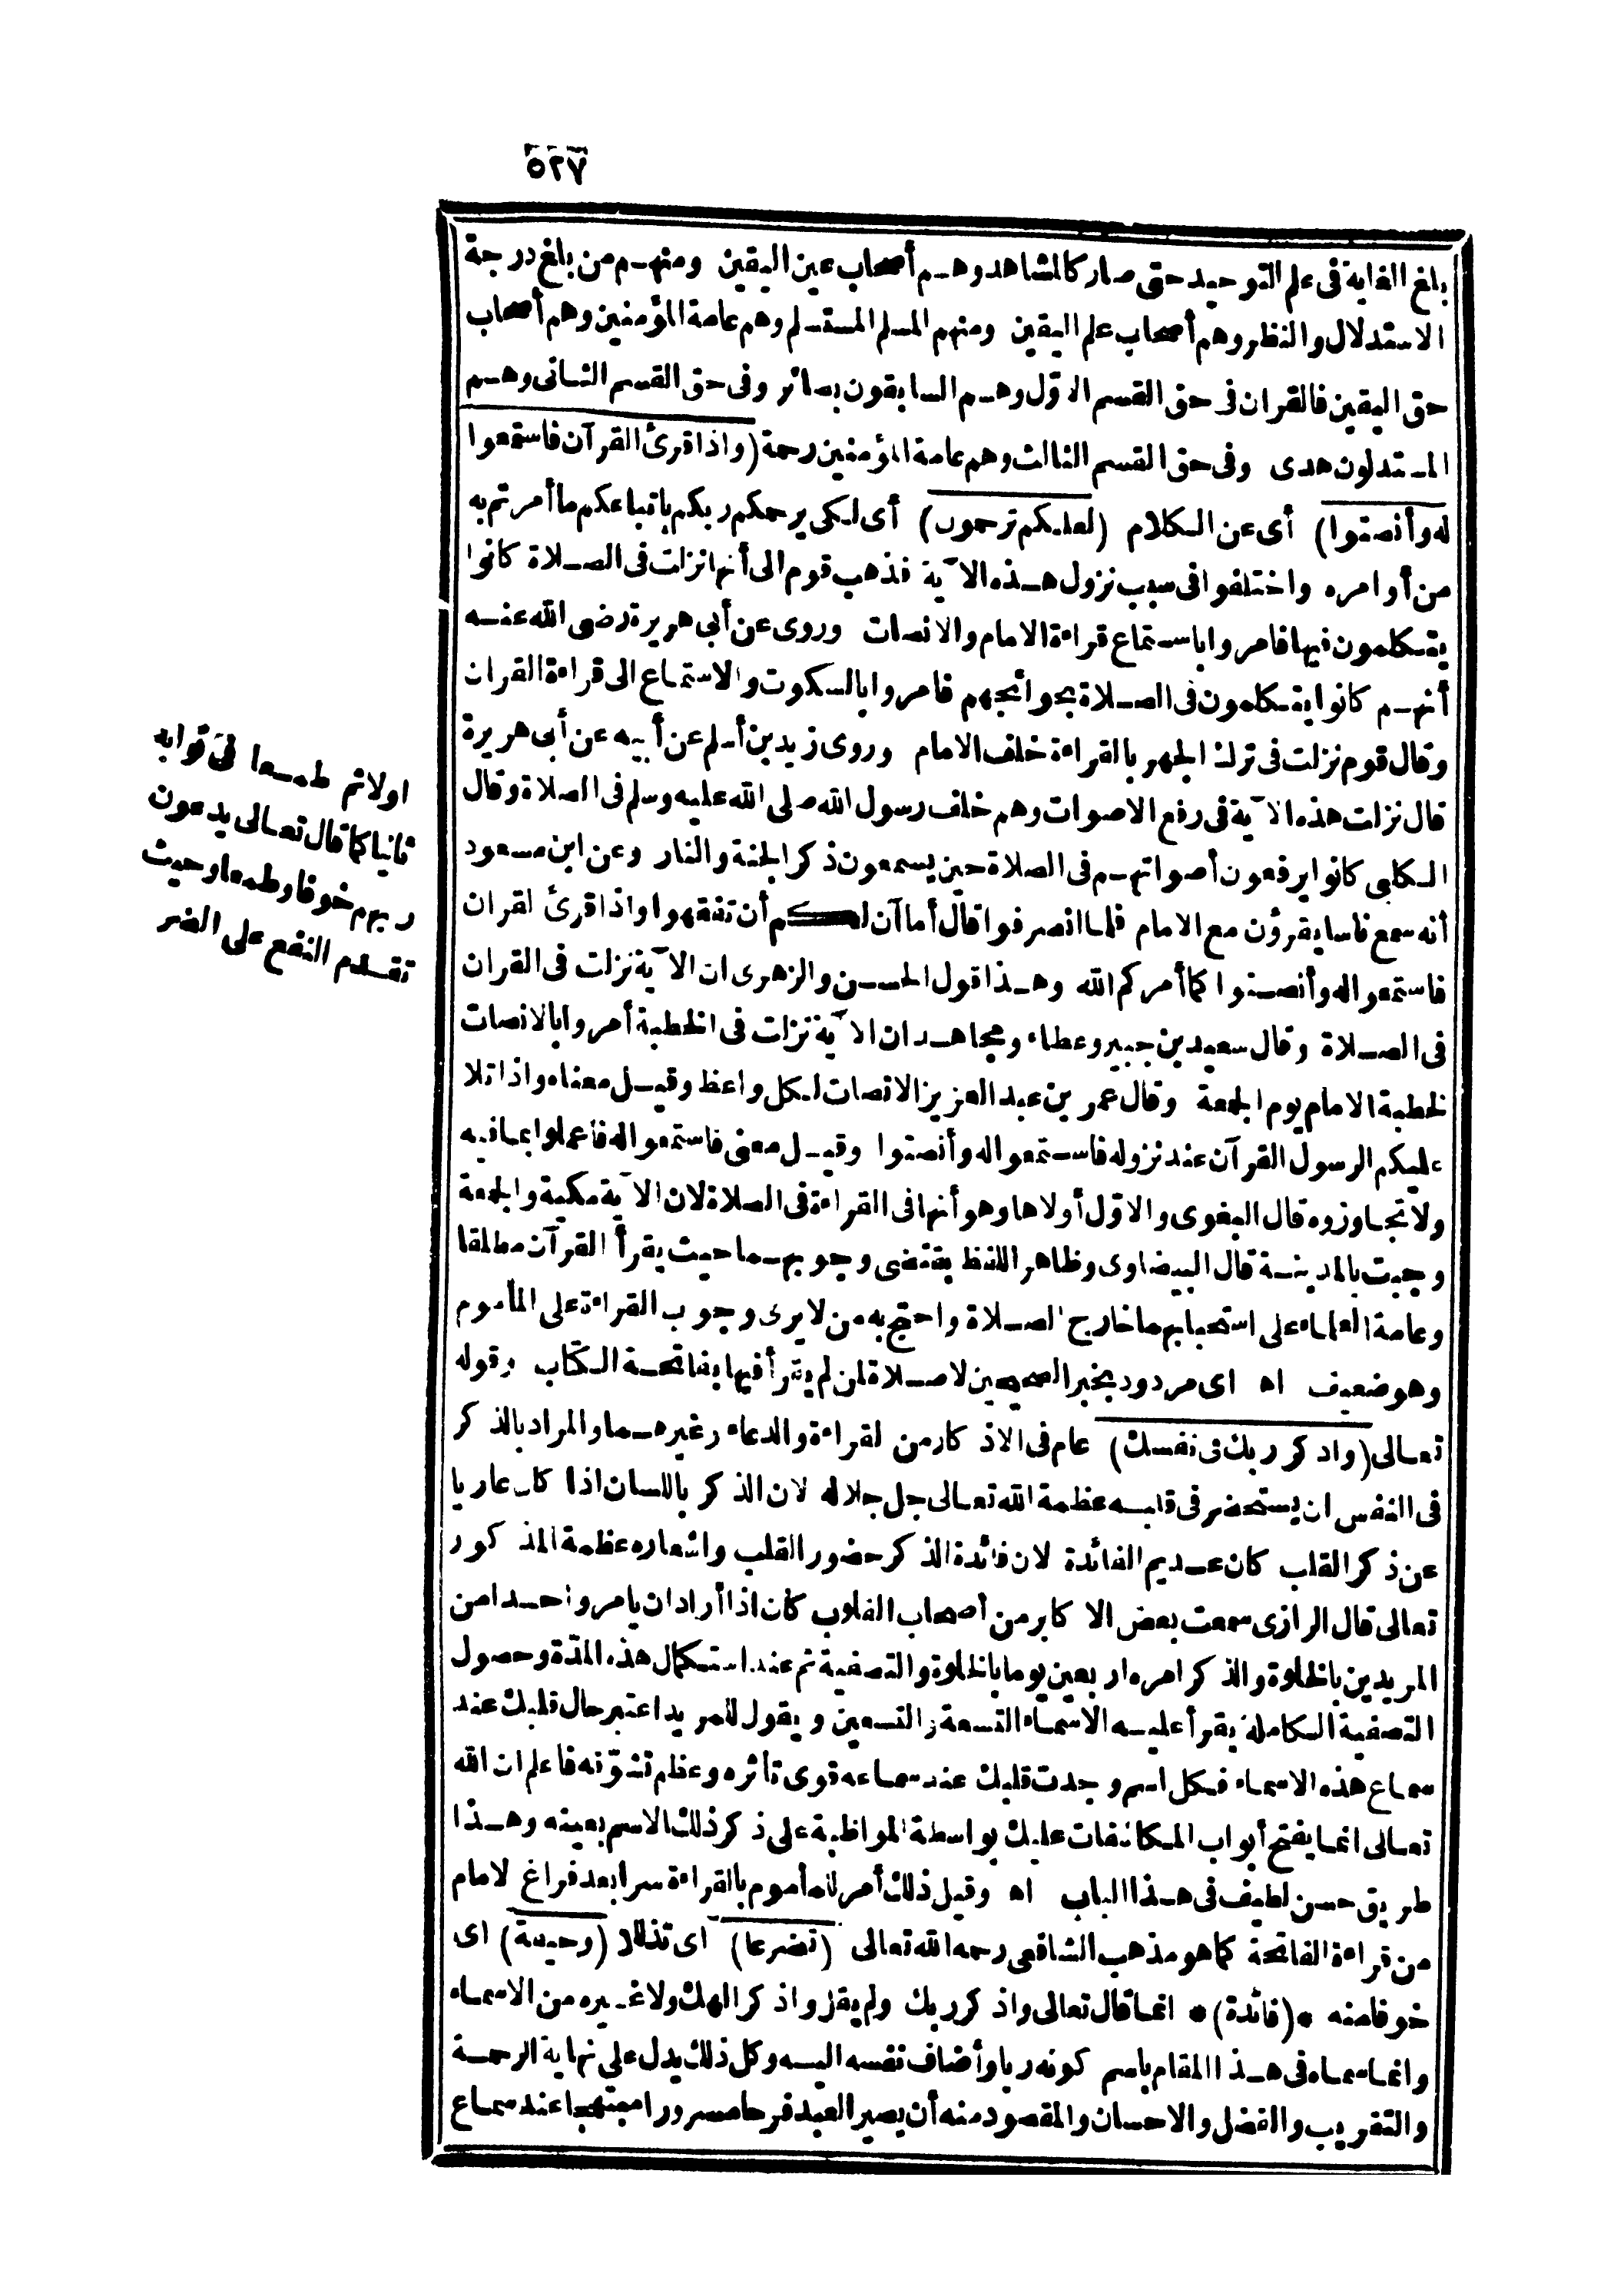 ٥٢٧
بلغ الغاية فى علم التوحيد حتى صار كالمشاهد وهم أصحاب عين اليقين ومنهم من بلغ درجة
الاستدلال والنظر وهم أصحاب علم اليقين ومنهم المسلم المستسلم وهم عامة المؤمنين وهم أصحاب
حق اليقين فالقران فى حق القسم الاوّل وهم السابقون بصائر وفى حق القسم الثانى وهم
المستدلون هدى وفى حق القسم الثالث وهم عامة المؤمنين رحمة (واذا قرئ القرآن فاستمعوا
له وأنصتوا) أى عن الكلام (لعلكم ترحمون) أى لكى يرحمكم ربكم باتباعكم ما أمرتم به
من أوامره واختلفوا فى سبب نزول هذه الآية فذهب قوم الى أنها نزلت فى الصلاة كانوا
يتكلمون فيها فامروا باستماع قراءة الامام والانصات وروى عن أبى هريرة رضى الله عنه
أنهم كانوا يتكلمون فى الصلاة بحوائجهم فامروا بالسكوت والاستماع الى قراءة القران
وقال قوم نزلت فى ترك الجهر بالقراءة خلف الامام وروى زيد بن أسلم عن أبيه عن أبى هريرة
قال نزلت هذه الآية فى رفع الاصوات وهم خلف رسول الله صلى الله عليه وسلم فى الصلاة وقال
الكلبى كانوا يرفعون أصواتهم فى الصلاة حين يسمعون ذكر الجنة والنار وعن ابن مسعود
أنه سمع ناسا يقرؤن مع الامام فلما انصرفوا قال أما آن لكم أن تفقهوا واذا قرئ القران
فاستمعوا له وأنصتوا كما أمركم الله وهذا قول الحسن والزهرى ان الآية نزلت فى القران
فى الصلاة وقال سعيد بن جبير وعطاء ومجاهد ان الآية نزلت فى الخطبة أمروا بالانصات
لخطبة الامام يوم الجمعة وقال عمر بن عبد العزيز الانصات لكل واعظ وقيل معناه واذا تلا
عليكم الرسول القرآن عند نزوله فاستمعوا له وأنصتوا وقيل معنى فاستمعوا له فاعملوا بما فيه
ولا تجاوزوه قال البغوى والاوّل أولاها وهو أنها فى القراءة فى الصلاة لان الآية مكية والجمعة
وجبت بالمدينة قال البيضاوى وظاهر اللفظ يقتضى وجوبهما حيث يقرأ القرآن مطلقا
وعامة العلماء على استحبابهما خارج الصلاة واحتج به من لا يرى وجوب القراءة على المأموم
وهو ضعيف اه اى مردود بخبر الصحيحين لا صلاة لمن لم يقرأ فيها بفاتحة الكتاب وقوله
تعالى (واذكر ربك فى نفسك) عام فى الاذكار من القراءة والدعاء وغيرهما والمراد بالذكر
فى النفس ان يستحضر فى قلبه عظمة الله تعالى جل جلاله لان الذكر باللسان اذا كان عاريا
عن ذكر القلب كان عديم الفائدة لان فائدة الذكر حضور القلب واشعاره عظمة المذكور
تعالى قال الرازى سمعت بعض الاكابر من أصحاب القلوب كان اذا أراد ان يامر واحدا من
المريدين بالخلوة والذكر امره اربعين يوما بالخلوة والتصفية ثم عند استكمال هذه المدّة وحصول
التصفية الكاملة يقرأ عليه الاسماء التسعة والتسعين ويقول للمريد اعتبر حال قلبك عند
سماع هذه الاسماء فكل اسم وجدت قلبك عند سماعه قوى تاثره وعظم تشوّقه فاعلم ان الله
تعالى انما يفتح أبواب المكاشفات عليك بواسطة المواظبة على ذكر ذلك الاسم بعينه وهذا
طريق حسن لطيف فى هذا الباب اه وقيل ذلك أمر للمأموم بالقراءة سرا بعد فراغ الامام
من قراءة الفاتحة كما هو مذهب الشافعى رحمه الله تعالى (تضرعا) اى تذللا (وخيفة) اى
خوفا منه *(فائدة)* انما قال تعالى واذكر ربك ولم يقل واذكر الهك ولا غيره من الاسماء
وانما سماه فى هذا المقام باسم كونه ربا وأضاف نفسه اليه وكل ذلك يدل على نهاية الرحمة
والتقريب والفضل والاحسان والمقصود منه أن يصير العبد فرحا مسرورا مبتهجا عند سماع
اولا ثم طمعا فى ثوابه
ثانيا كما قال تعالى يدعون
ربهم خوفا وطمعا وحيث
تقدم النفع على الضر